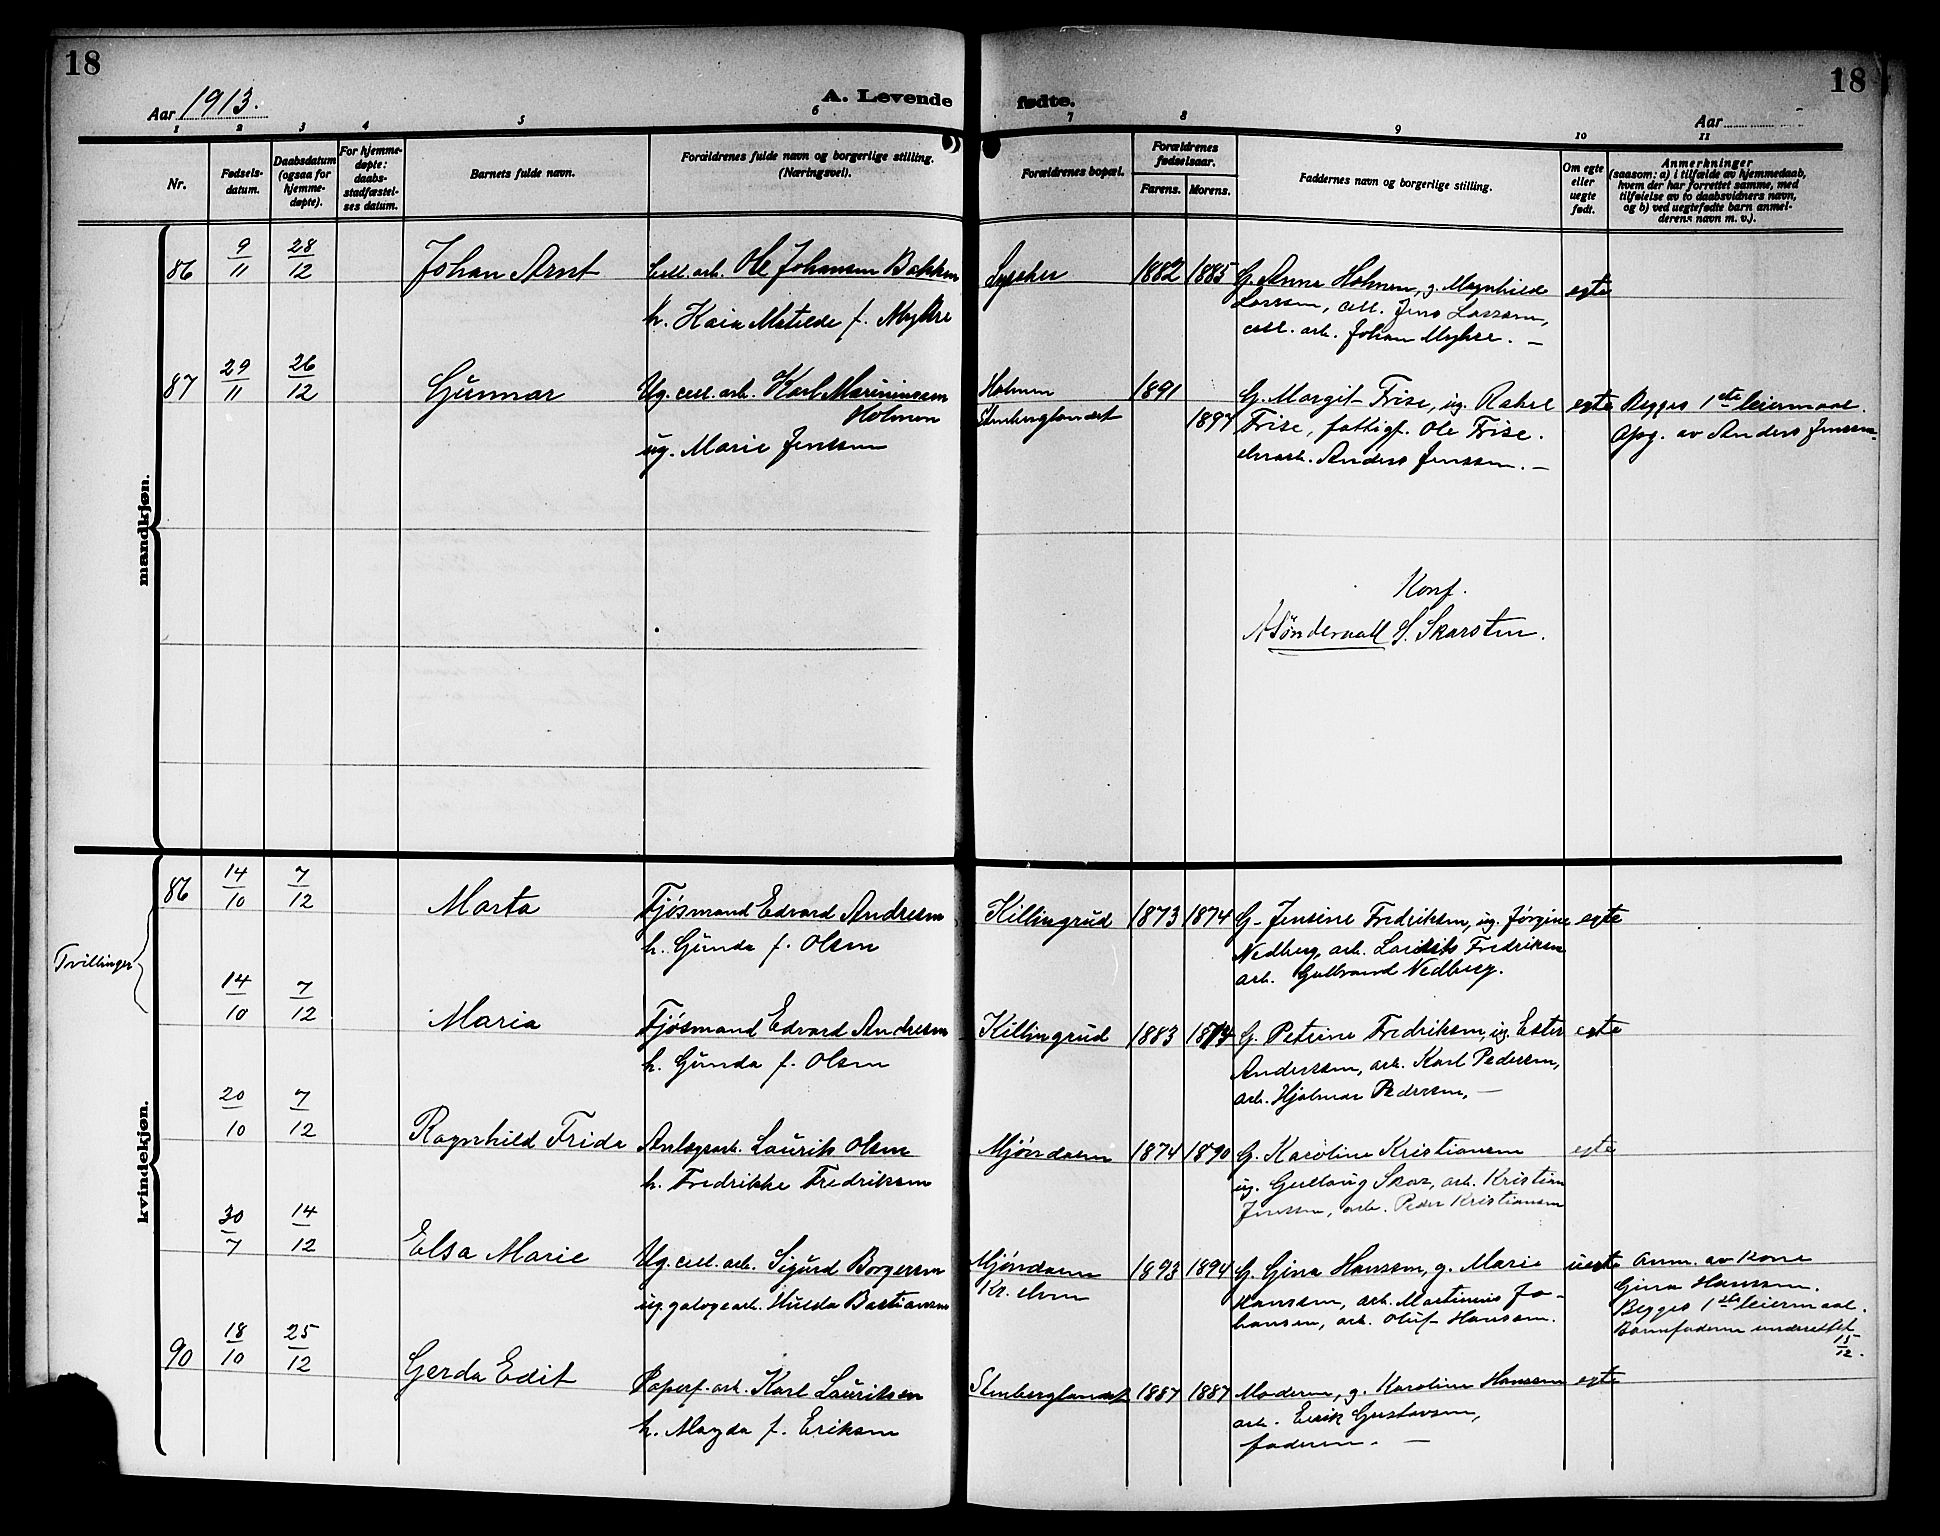 18
Aar 1913.
A. Levende
fødte.
18
Aar
1 2 3 4 5 6 7 8 9 10 11
Nr.
Fødsels-
datum.
Daabsdatum
(ogsaa for
hjemme-
døpte).
For hjemme-
døpte:
daabs-
stadfæstel-
ses datum.
Barnets fulde navn.
Forældrenes fulde navn og borgerlige stilling.
(Næringsvei).
Forældrenes bopæl.
Forældrenes
fødselsaar.
Farens. Morens.
Faddernes navn og borgerlige stilling.
Om egte
eller
uegte
født.
Anmerkninger
(saasom: a) i tilfælde av hjemmedaab,
hvem der har forrettet samme, med
tilføielse av to daabsvidners navn,
og b) ved uegtefødte barn anmel-
derens navn m. v.).
mandkjøn.
86 9/11 28/12 Johan Arnt
Cell. arb. Ole Johansen Bakken
h. Kaia Matilde f. Myhre
1882 1885
G. Anna Holmen, g. Magnhilde
Larsen, cell. Jens Larssen,
cell. arb. Johan Myhre. —
egte
87 29/11 26/12 Gunnar
Ug. cell. arb. Karl Marinussen
Holmen
ug. Marie Jenssen
Holmen
Stenberglandet
1891
1894
G. Margit Frise, ug. Rakel
Frise, fattigf. Ole Frise.
elvearb. Anders Jenssen. —
egte
Begges 1ste leiermaal.
Opg. av Anders Jenssen.
Konf.
S. Skarsten.
kvindekjøn.
Tvillinger
86 14/10 7/12 Marta
Fjøsmand Edvard Andresen
h. Gunda f. Olsen
Killingrud 1873 1874
G. Jensine Fredriksen, ug. Jørgine
Nedberg, arb. Laurits Fredriksen
arb. Gulbrand Nedberg.
egte
14/10 7/12 Maria
Fjøsmand Edvard Andresen
h. Gunda f. Olsen
Killingrud 1883 1874
G. Petrine Fredriksen, ug. Ester
Anderssen, arb. Karl Pedersen,
arb. Hjalmar Pedersen. —
egte
20/10 7/12 Ragnhild Frida
Anlægsarb. Laurits Olsen
h. Fredrikke Fredriksen
Mjøndalen 1874 1890
G. Karoline Kristiansen
ug. Gudlaug Skar, arb. Kristian
Jenssen, arb. Peder Kristiansen
egte
30/7 14/12 Elsa Marie
Ug. cell. arb. Sigurd Borgersen
ug. galogearb. Hulda Bastiansen
Mjøndalen
Kr. elven
1893 1894
G. Gina Hanssen, g. Marie
Hanssen, arb. Martinius Jo-
hansen, arb. Oluf Hanssen.
uegte
Anm. av kone
Gina Hanssen.
Begges 1ste leiermaal.
Barnefaderen underettet
15/12.
90 18/10 25/12 Gerda Edit
Papirf. arb. Karl Lauriksen
h. Magda f. Eriksen
Stenberglandet 1887 1887
Moderen, g. Karoline Hanssen
arb. Eirik Gustavsen,
faderen. —
egte